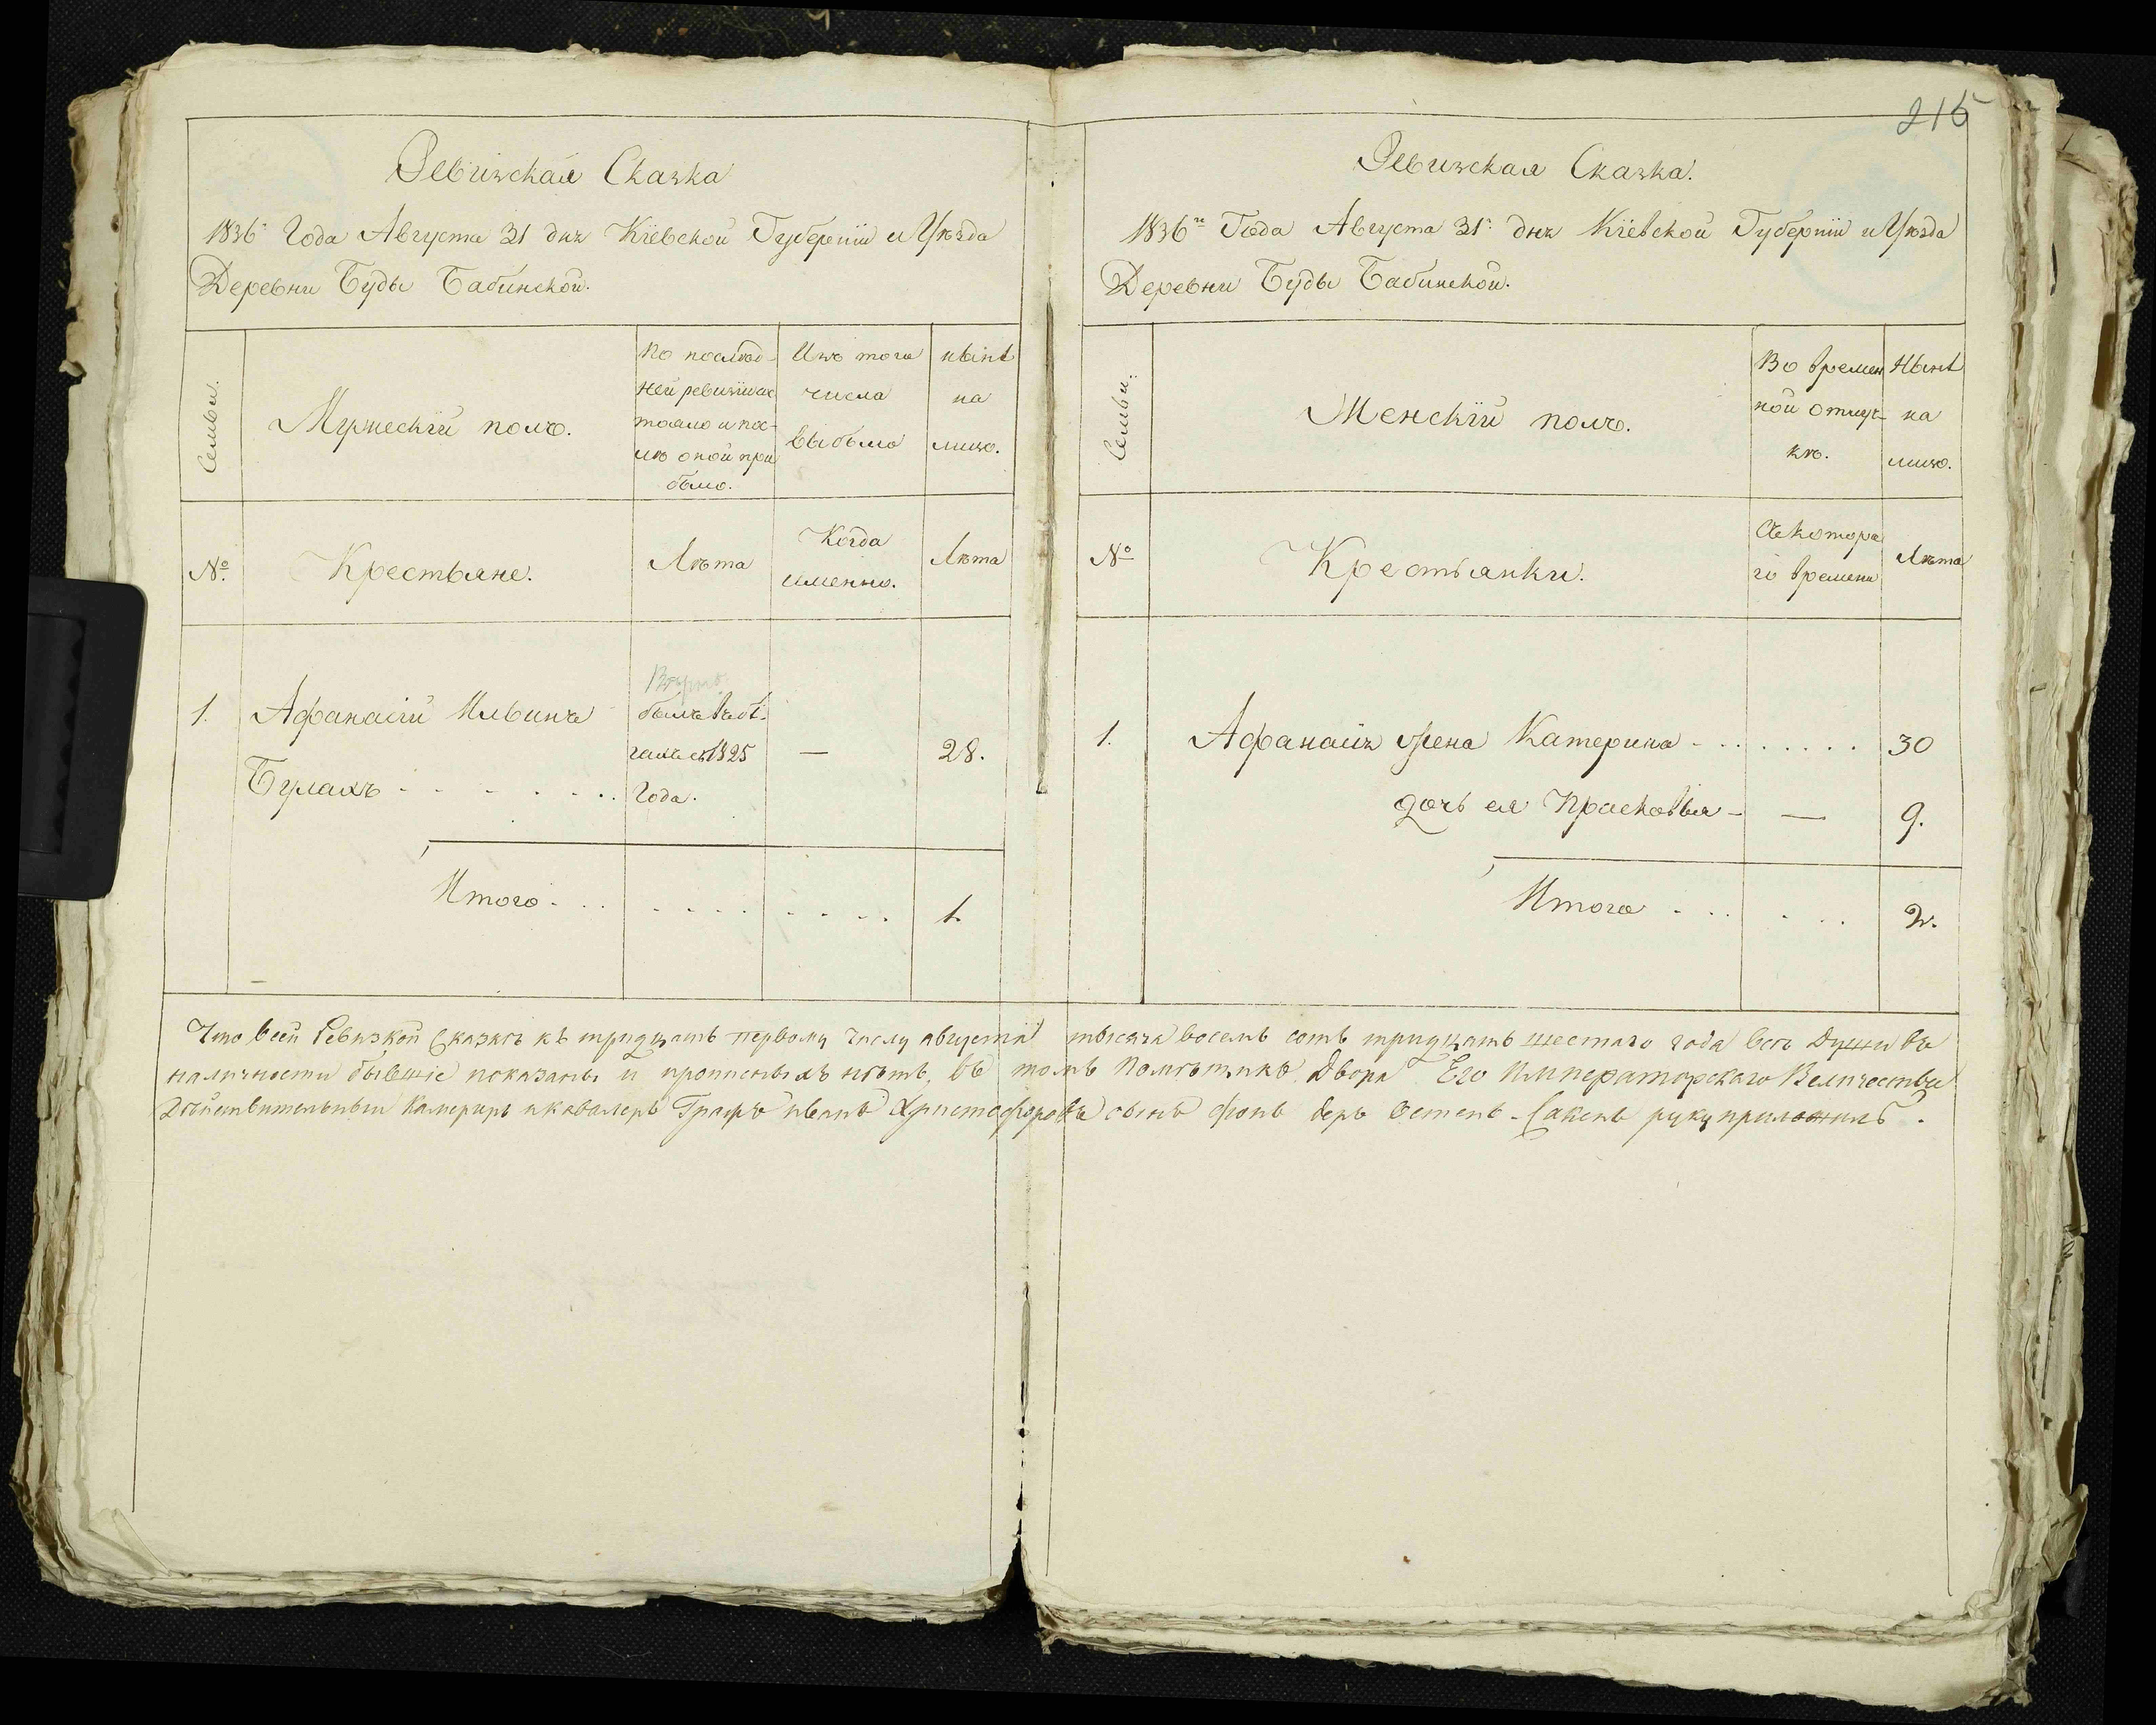 Ревизская Сказка
1836: Года Августа 31 дня Кіевской Губерніи и Уѣзда
Деревни Буды Бабинской.
Семьи.
Мужескій полъ.
По послѣд-
ней ревизіи сос
тояло и пос-
лѣ оной при
было.
Изъ того
числа
выбыло
нынѣ
на
лицо.
№
Крестьяне.
Лѣта
Когда
именно.
Лѣта
1.
Афанасій Ильинъ
Булахъ . . . . . .
былъ въ бѣ-
гахъ съ 1825
Года.
—
28.
Итого . . .
1.
215
Ревизская Сказка.
1836го Года Августа 31: дня Кіевской Губерніи и Уѣзда
Деревни Буды Бабинской.
Семьи:
Женскій полъ.
Во времен
ной отлуч-
кѣ.
Нынѣ
на
лицо.
№
Крестьянки.
Съ котора
го времени
Лѣта
1.
Афанасія жена Катерина - . . . . . . . 30
дочь ея Прасковья - — 9.
Итого . . . . . . 2.
Что в сей Ревизкой Сказкѣ къ тридцать первому числу августа тысяча восемь сотъ тридцать шестаго года всѣ Души въ
наличности бывшіе показаны и прописныхъ нѣтъ, въ томъ Помѣщикъ Двора Его Императорскаго Величества
Дѣйствительный Камергеръ и кавалеръ Графъ Иванъ Христофоровъ сынъ фонъ деръ Остенъ-Сакенъ руку приложилъ.